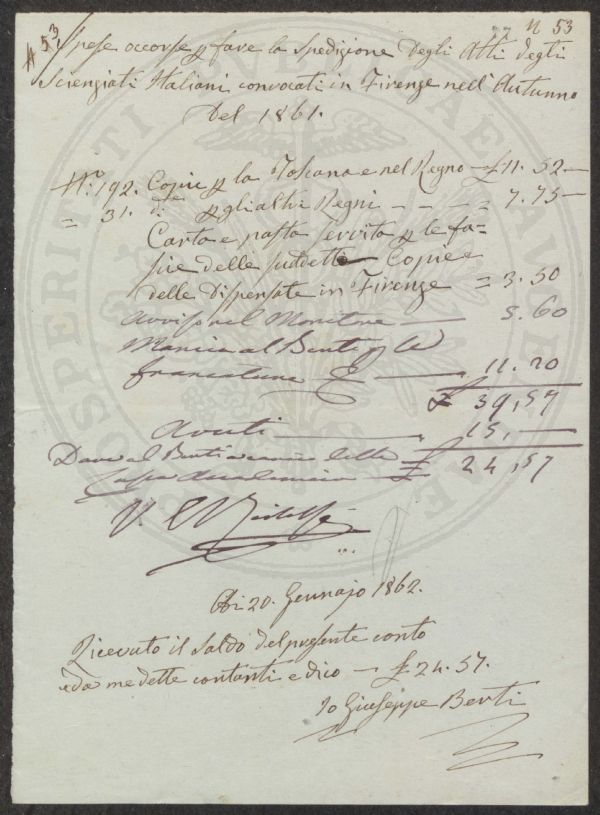 # 53
N 53
Spese occorse p fare la spedizione Degli Atti degli
Scienziati Italiani convocati in Firenze nell'Autunno
Del 1861.
N.° 192. Copie p la Toscana e nel Regno — £ 11. 52 —
= 31. di p gli altri Regni - - - = 7. 75 —
Carta e pasta servita p le fa-
scie delle suddette Copie e
delle Dispensate in Firenze = 3. 50
Avviso nel Monitore — 5. 60
Mancia al Berti p la
francatura — 11. 20
£ 39,57
Avuti — 15, —
Dare al Berti delle £ 24,57
Cassa Accademica
V.
Adi 20. Gennajo 1862.
Ricevuto il saldo del presente conto
e da me dette contanti e dico — £. 24. 57.
Io Giuseppe Berti
PROSPERITATI PUBLICAE